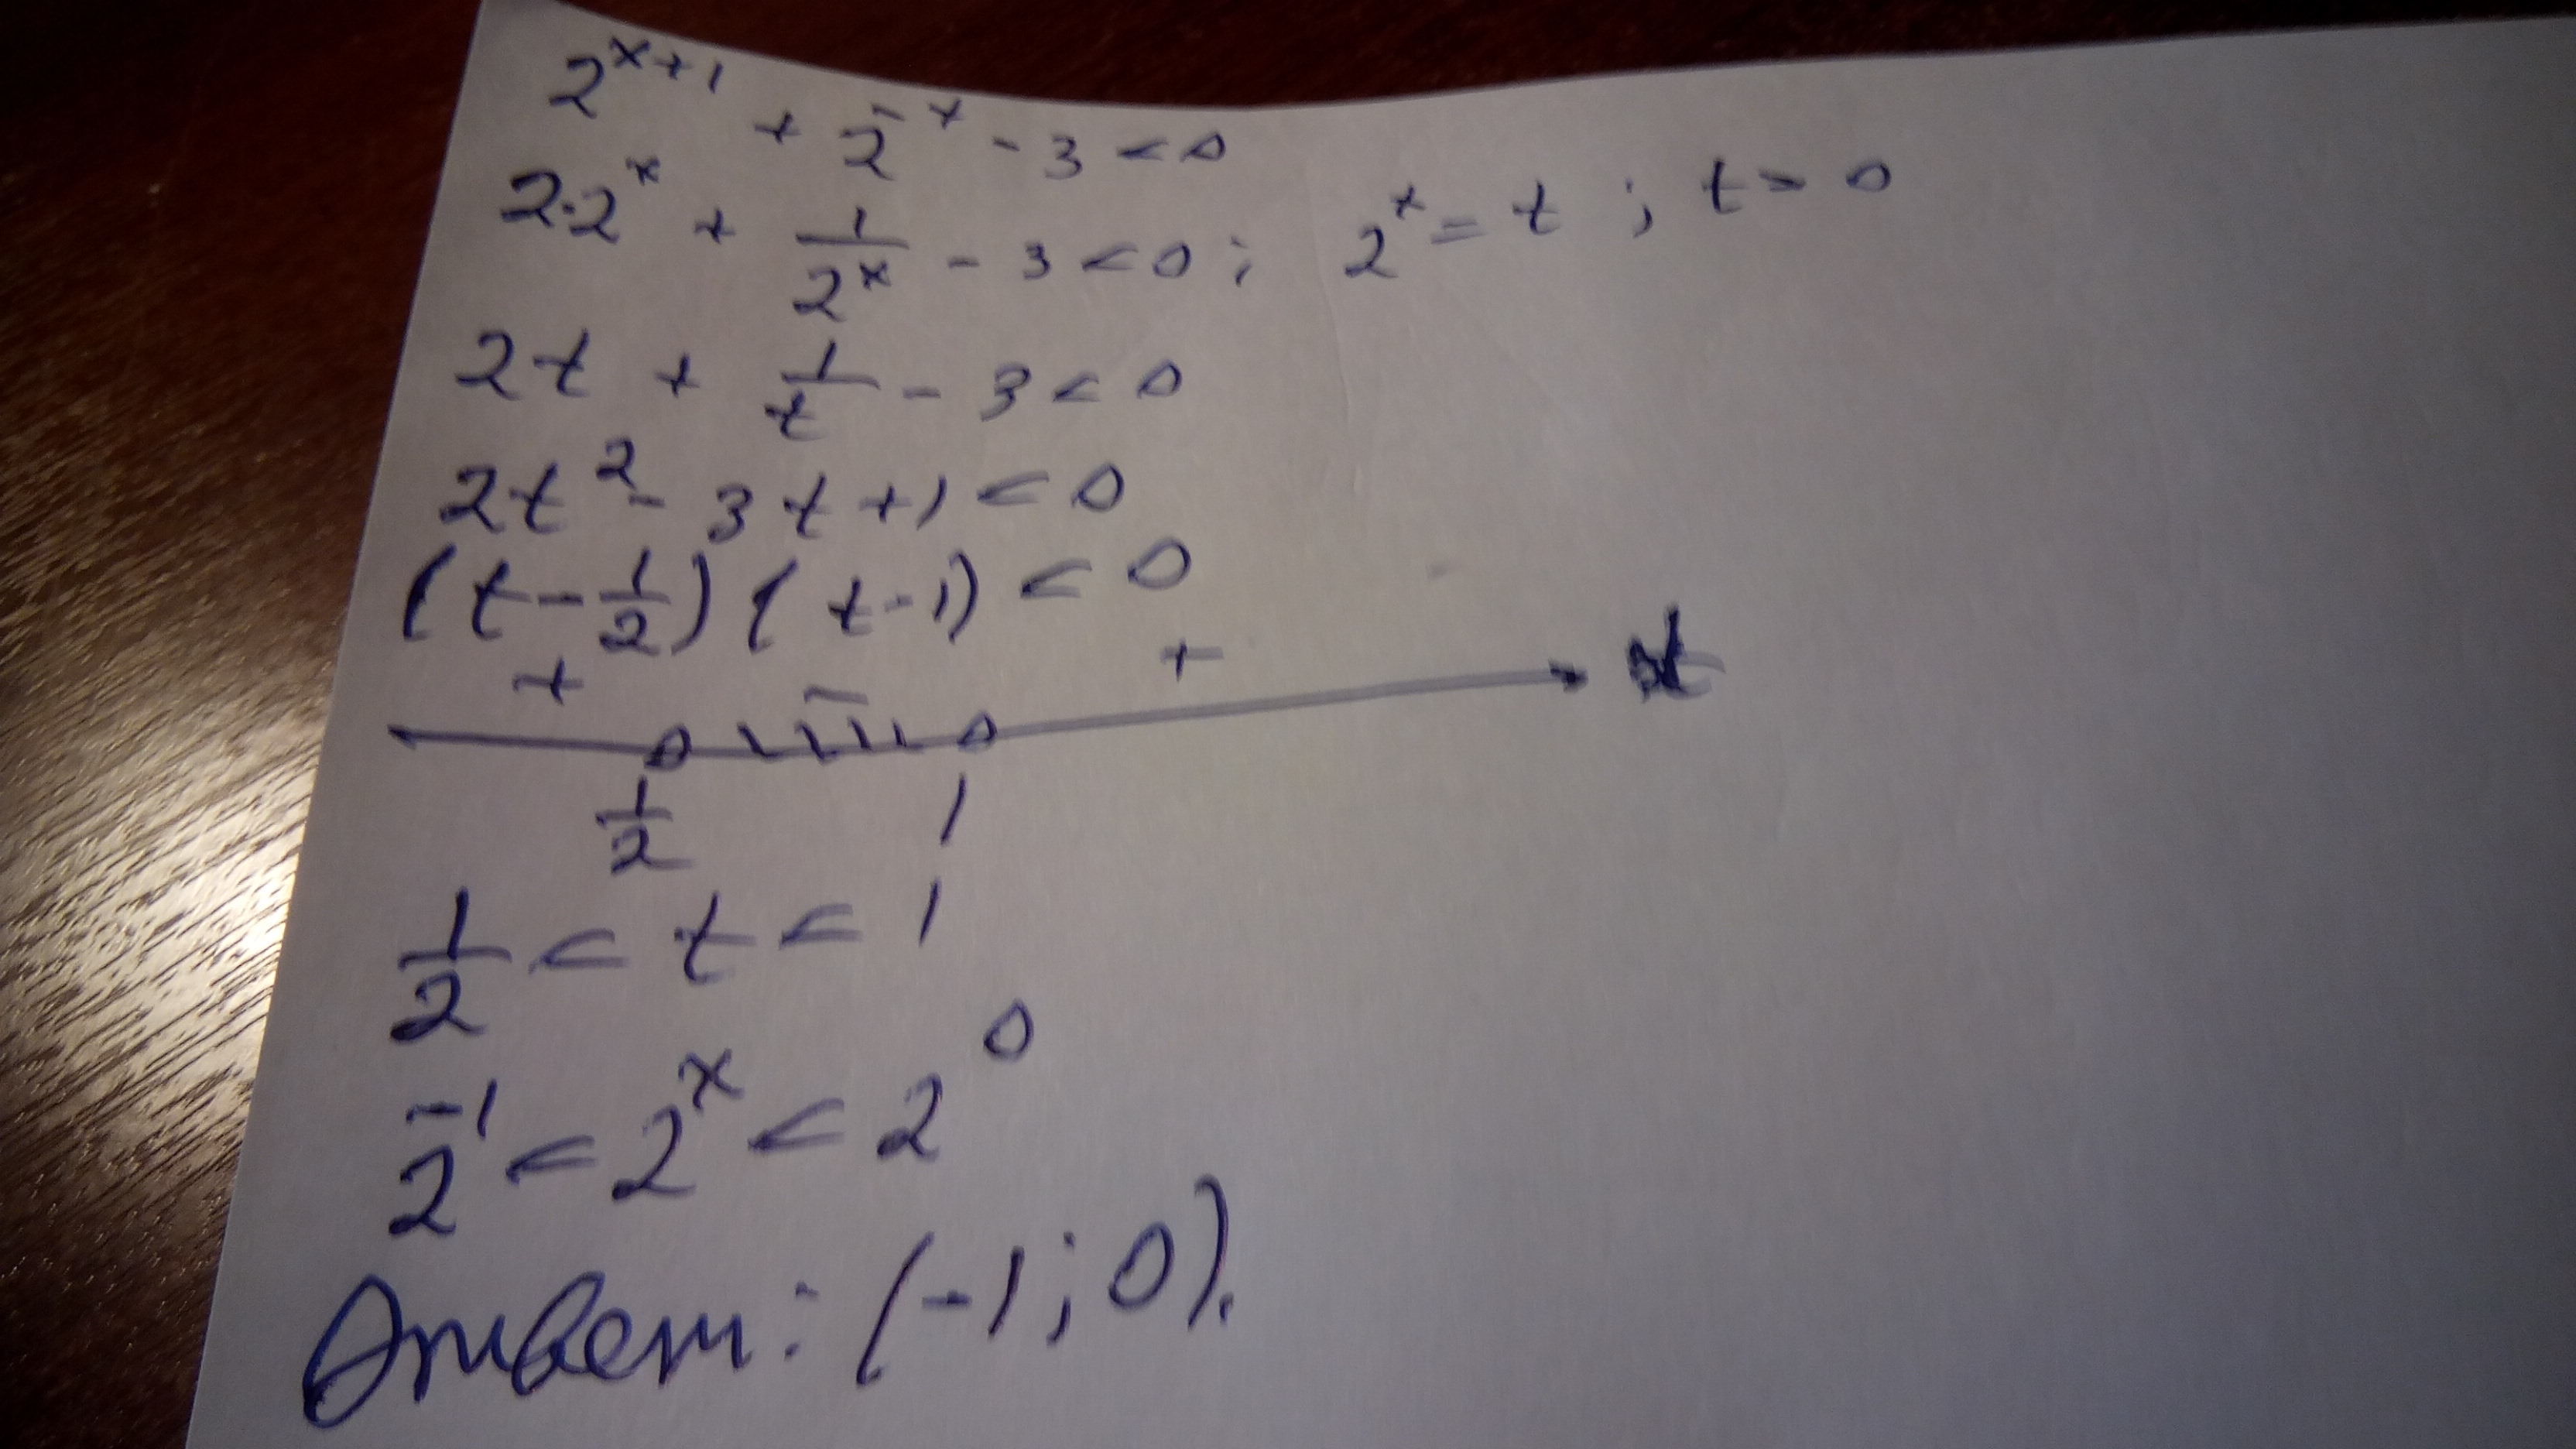 2^{x+1} + 2^{-x} - 3 < 0
2·2^x + 1/2^x - 3 < 0; 2^x = t; t > 0
2t + 1/t - 3 < 0
2t^2 - 3t + 1 < 0
(t - 1/2)(t - 1) < 0
+ - + t
1/2 1
1/2 < t < 1
2^{-1} < 2^x < 2^0
Ответ: (-1; 0).